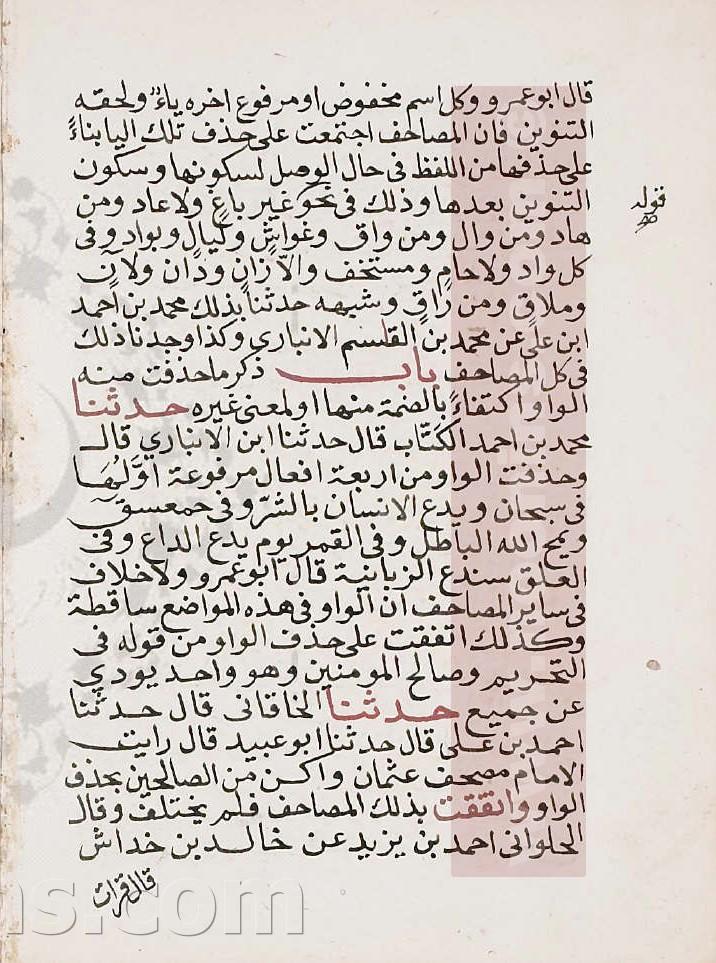 قال ابو عمرو وكل اسم مخفوض او مرفوع اخره ياء ولحقه
التنوين فان المصاحف اجتمعت على حذف تلك اليا بناءً
على حذفها من اللفظ في حال الوصل لسكونها وسكون
التنوين بعدها وذلك في نحو غير باغٍ ولا عاد ومن
قوله
هاد ومن وال ومن واق وغواشٍ وليال وبواد وفي
كل واد ولا حامٍ ومستخف والا زانٍ ودان ولاتٍ
وملاقٍ ومن راقٍ وشبهه حدثنا بذلك محمد بن احمد
ابن على عن محمد بن القسم الانباري وكذا وجدنا ذلك
في كل المصاحف باب ذكر ما حذفت منه
الواو اكتفاءً بالضمة منها او لمعنى غيره حدثنا
محمد بن احمد الكتّاب قال حدثنا ابن الانباري قال
وحذفت الواو من اربعة افعال مرفوعة اوّلُهَا
في سبحان ويدع الانسان بالشرّ وفي حمعسق
ويمح الله الباطل وفي القمر يوم يدع الداع وفي
العلق سندع الزبانية قال ابو عمرو ولا خلاف
في ساير المصاحف ان الواو في هذه المواضع ساقطة
وكذلك اتفقت على حذف الواو من قوله في
التحريم وصالح المومنين وهو واحد يودي
عن جميع حدثنا الخاقانى قال حدثنا
احمد بن على قال حدثنا ابو عبيد قال رايت
الامام مصحف عثمان واكن من الصالحين بحذف
الواو واتفقت بذلك المصاحف فلم يختلف وقال
الحلوانى احمد بن يزيد عن خالد بن خداش
قال قرات
ms.com